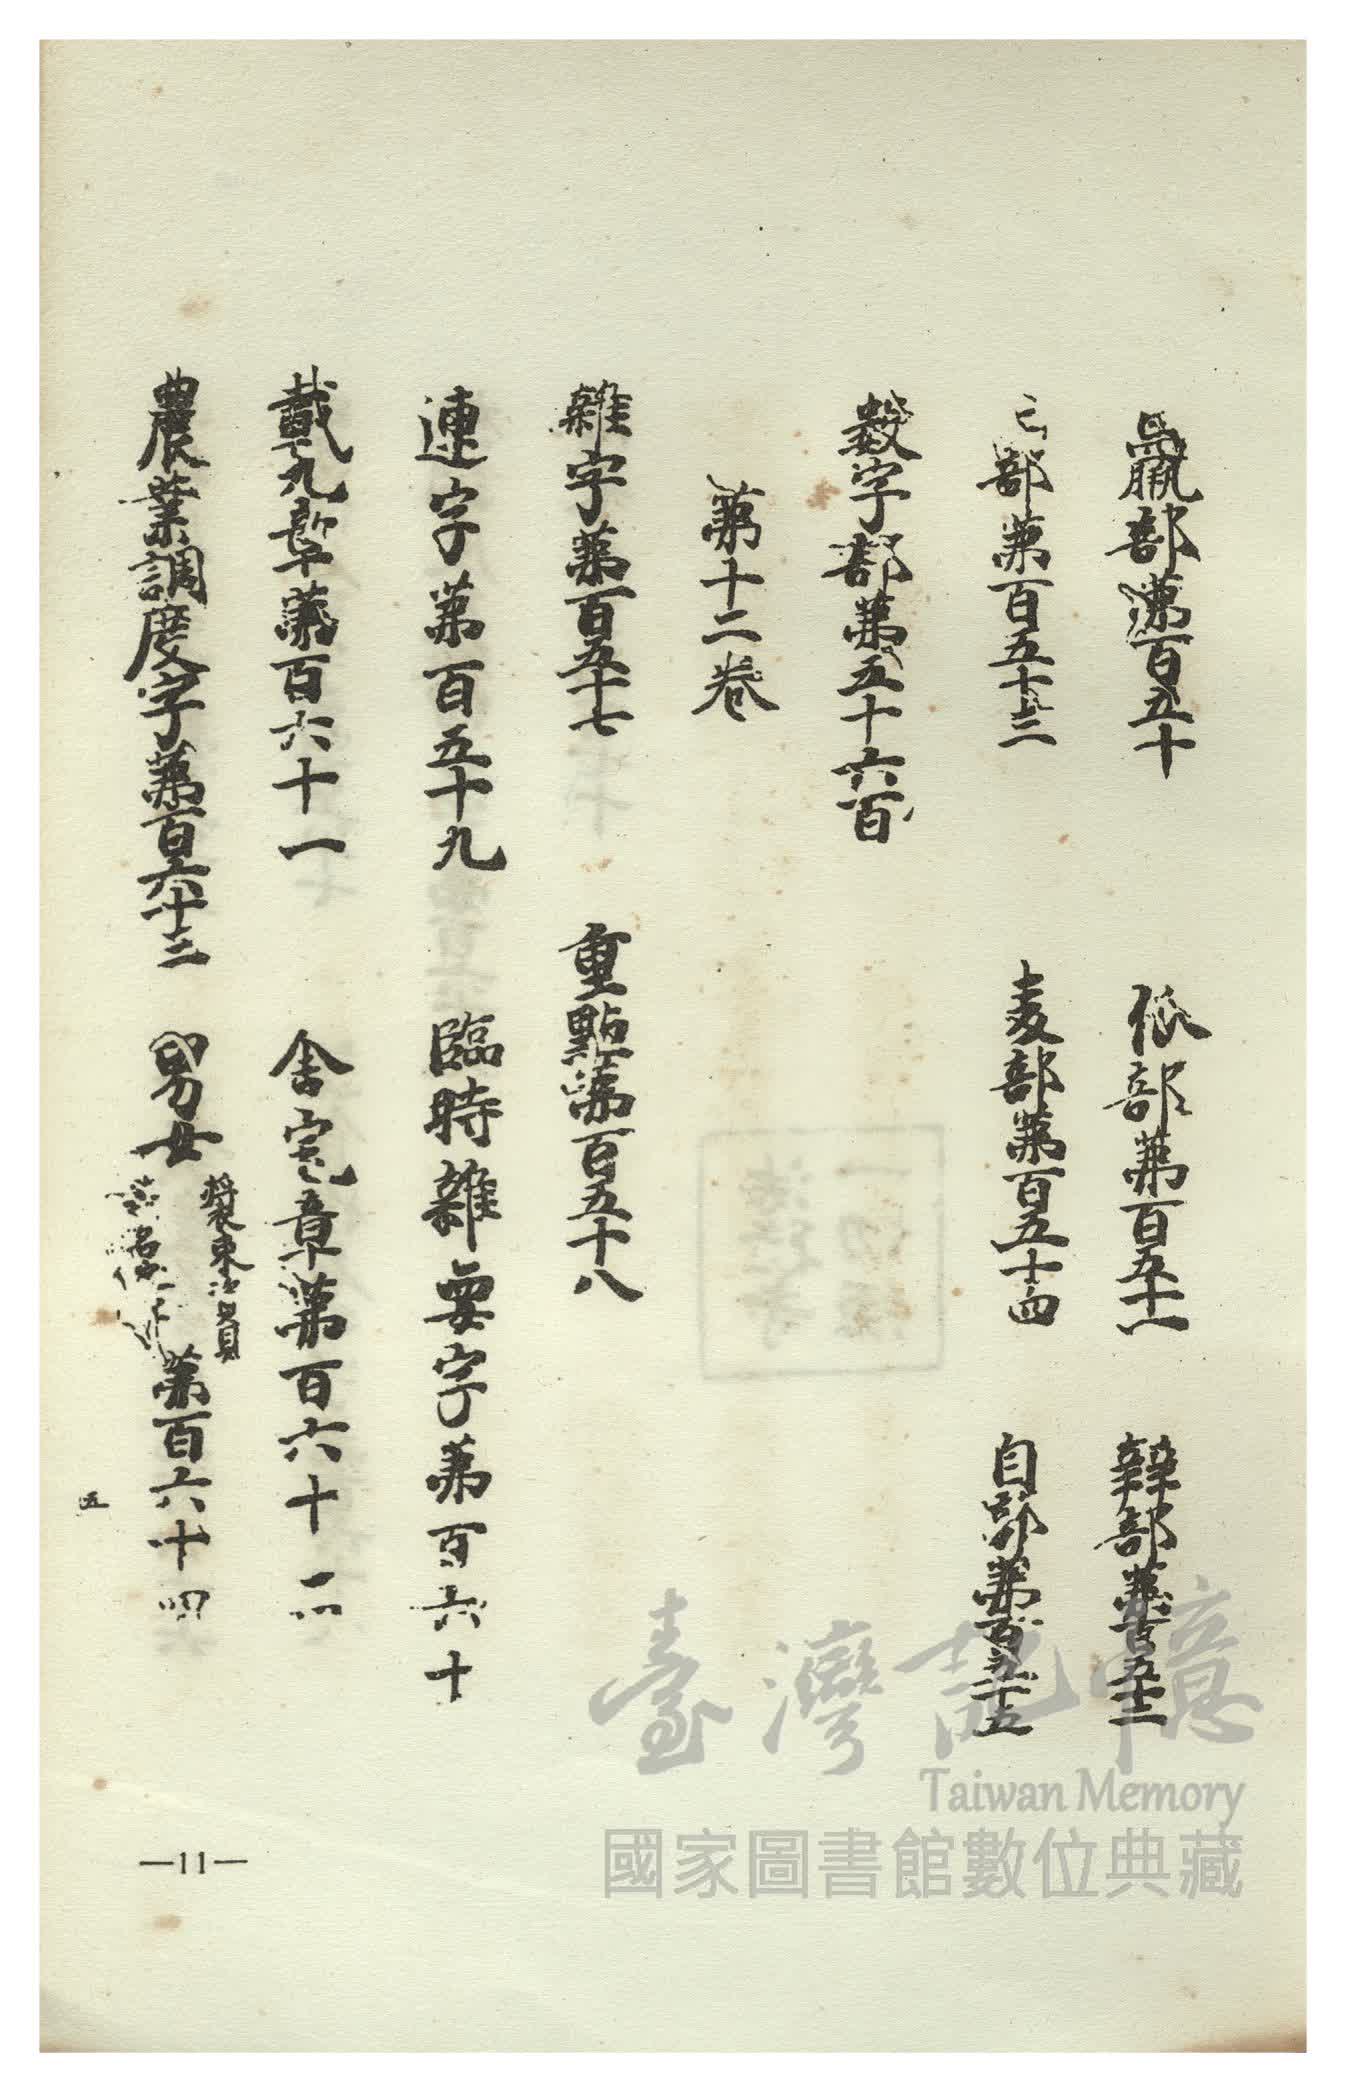 羸部第百五十　㐺部第百五十一　辡部第百五十二
部第百五十三　麦部第百五十四　自部第百五十五
数字部第五十六百
第十二巻
雑字第百五十七　重點第百五十八
連字第百五十九　臨時雑要字第百六十
載九章第百六十一　舎宅章第百六十二
農業調度字第百六十三　男女裝束　第百六十四
五
—11—
臺灣記憶
Taiwan Memory
國家圖書館數位典藏